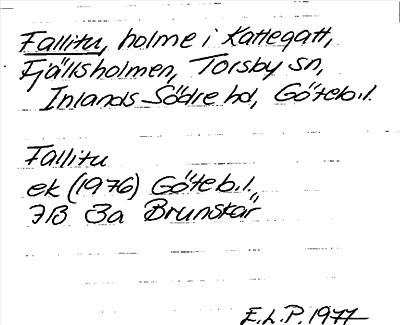 Fallitu, holme i Kattegatt,
Fjällsholmen, Torsby sn,
Inlands Södre hd, Göteb.l.
Fallitu
ek (1976) Göteb.l.,
7B 3a Brunskär
E.L.P. 1977